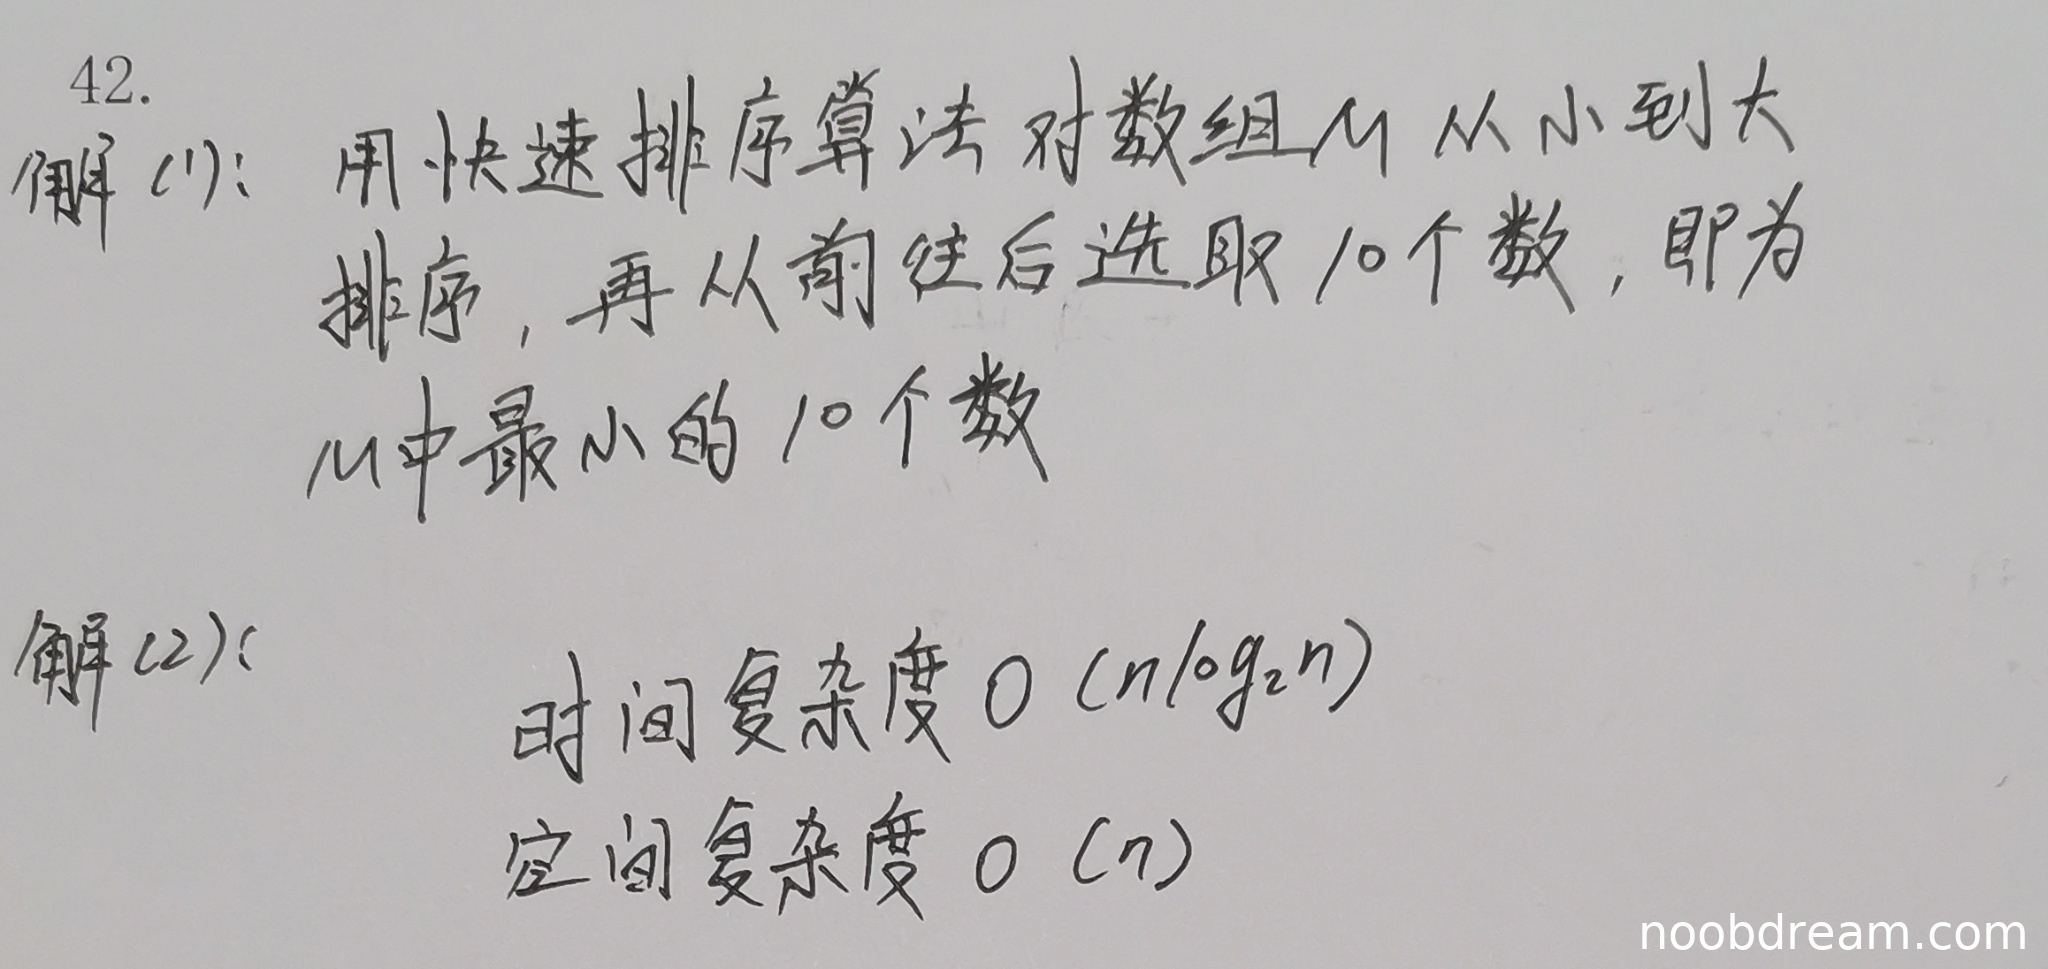 42.
解(1): 用快速排序算法对数组M从小到大
排序, 再从前往后选取10个数, 即为
M中最小的10个数
解(2):
时间复杂度 O(nlog₂n)
空间复杂度 O(n)
noobdream.com